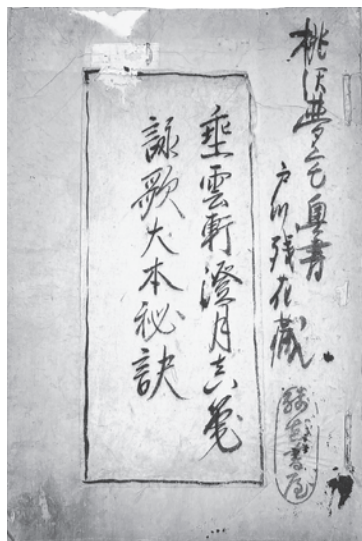 桃沢夢宅奥書
戸川残花蔵
書屋
垂雲軒澄月真筆
詠歌大本秘訣